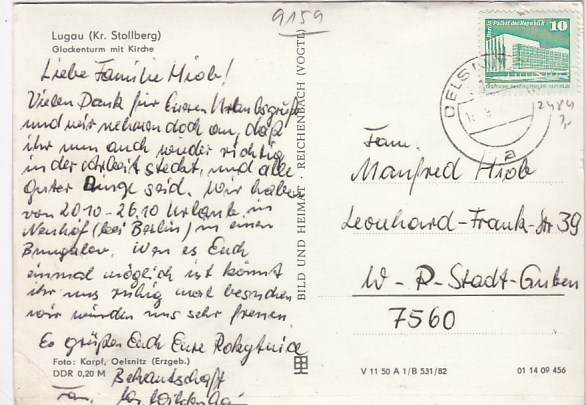 9159
Lugau (Kr. Stollberg)
Glockenturm mit Kirche
Liebe Familie Hiob!
Vielen Dank für Eueren Urlaubsgruß
und wir nehmen doch an, daß
ihr nun auch wieder richtig
in der Arbeit steckt, und alle
guter Dinge seid. Wir haben
von 20.10 - 26.10 Urlaub in
Neuhof (bei Berlin) in einen
Bungalow. Wenn es Euch
einmal möglich ist könnt
ihr uns ruhig mal besuchen
wir würden uns sehr freuen.
Es grüßen Euch Eure
Foto: Karpf, Oelsnitz (Erzgeb.)
DDR 0,20 M
BILD UND HEIMAT · REICHENBACH (VOGTL)
10
OELSN
a
2484
Fam.
Manfred Hiob
Leonhard-Frank-Str 39
W-P-Stadt-Guben
7560
V 11 50 A 1/B 531/82
01 14 09 456